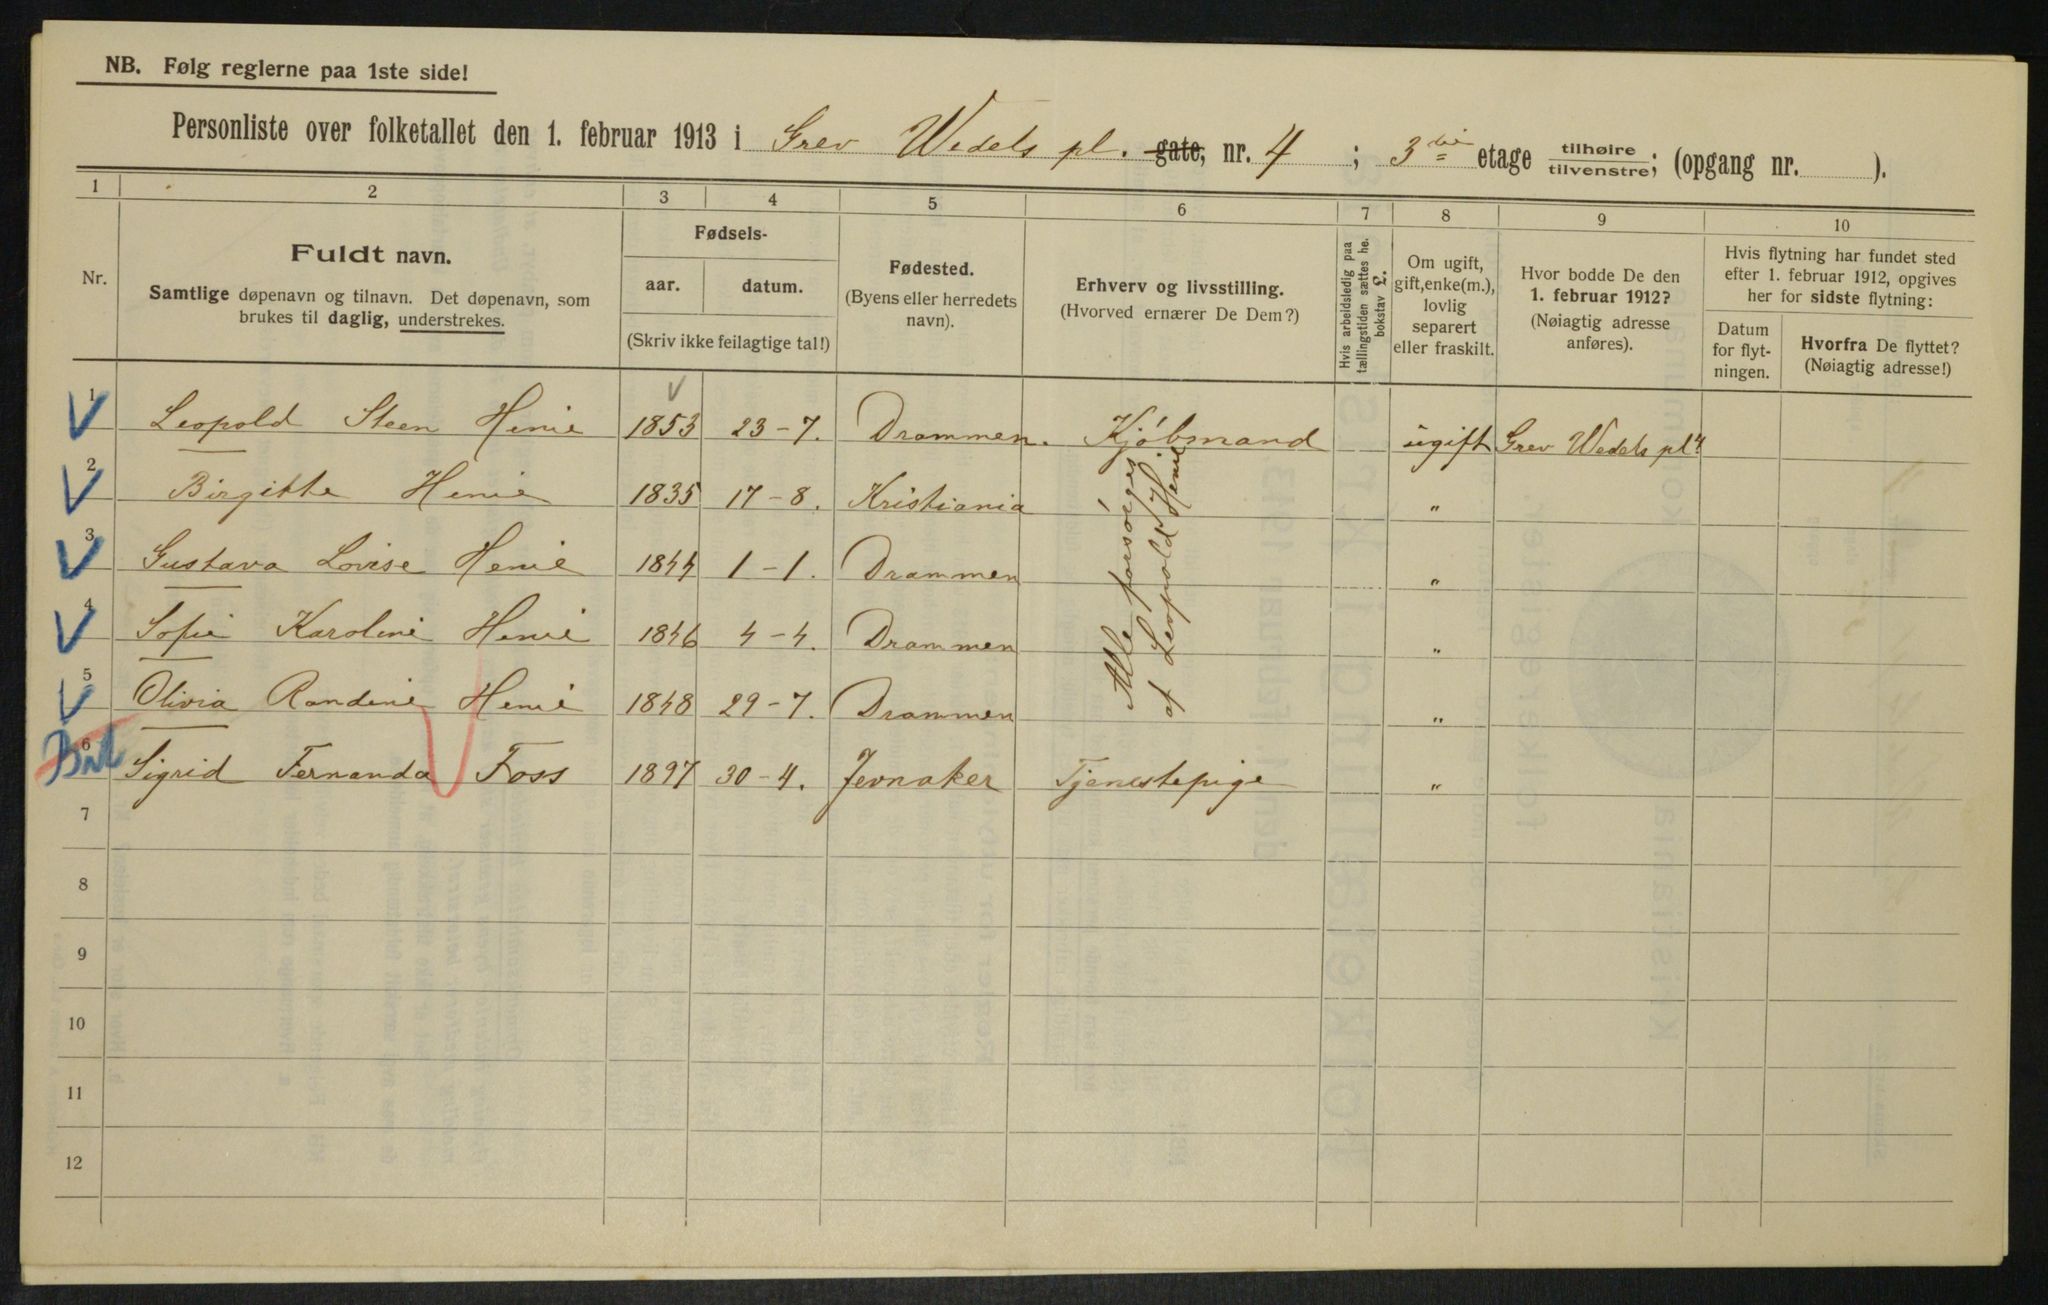 NB. Følg reglerne paa 1ste side!
Personliste over folketallet den 1. februar 1913 i Grev Wedels pl. gate, nr. 4 ; 3die etage tilhøire/tilvenstre; (opgang nr. ).
1 2 3 4 5 6 7 8 9 10
Nr.
Fuldt navn.
Samtlige døpenavn og tilnavn. Det døpenavn, som
brukes til daglig, understrekes.
Fødsels-
aar. datum.
(Skriv ikke feilagtige tal!)
Fødested.
(Byens eller herredets
navn).
Erhverv og livsstilling.
(Hvorved ernærer De Dem?)
Hvis arbeidsledig paa
tællingstiden sættes he.
bokstav £.
Om ugift,
gift, enke(m.),
lovlig
separert
eller fraskilt.
Hvor bodde De den
1. februar 1912?
(Nøiagtig adresse
anføres).
Hvis flytning har fundet sted
efter 1. februar 1912, opgives
her for sidste flytning:
Datum
for flyt-
ningen.
Hvorfra De flyttet?
(Nøiagtig adresse!)
1 Leopold Steen Henie 1853 23-7. Drammen. Kjøbmand ugift Grev Wedels pl 4
2 Birgitte Henie 1835 17-8. Kristiania "
3 Gustava Lovise Henie 1844 1-1. Drammen "
4 Sofie Karoline Henie 1846 4-4. Drammen "
5 Olivia Randine Henie 1848 29-7. Drammen "
Alle forsørges
af Leopold Henie
6 Sigrid Fernanda Foss 1897 30-4. Jevnaker Tjenestepige "
7
8
9
10
11
12